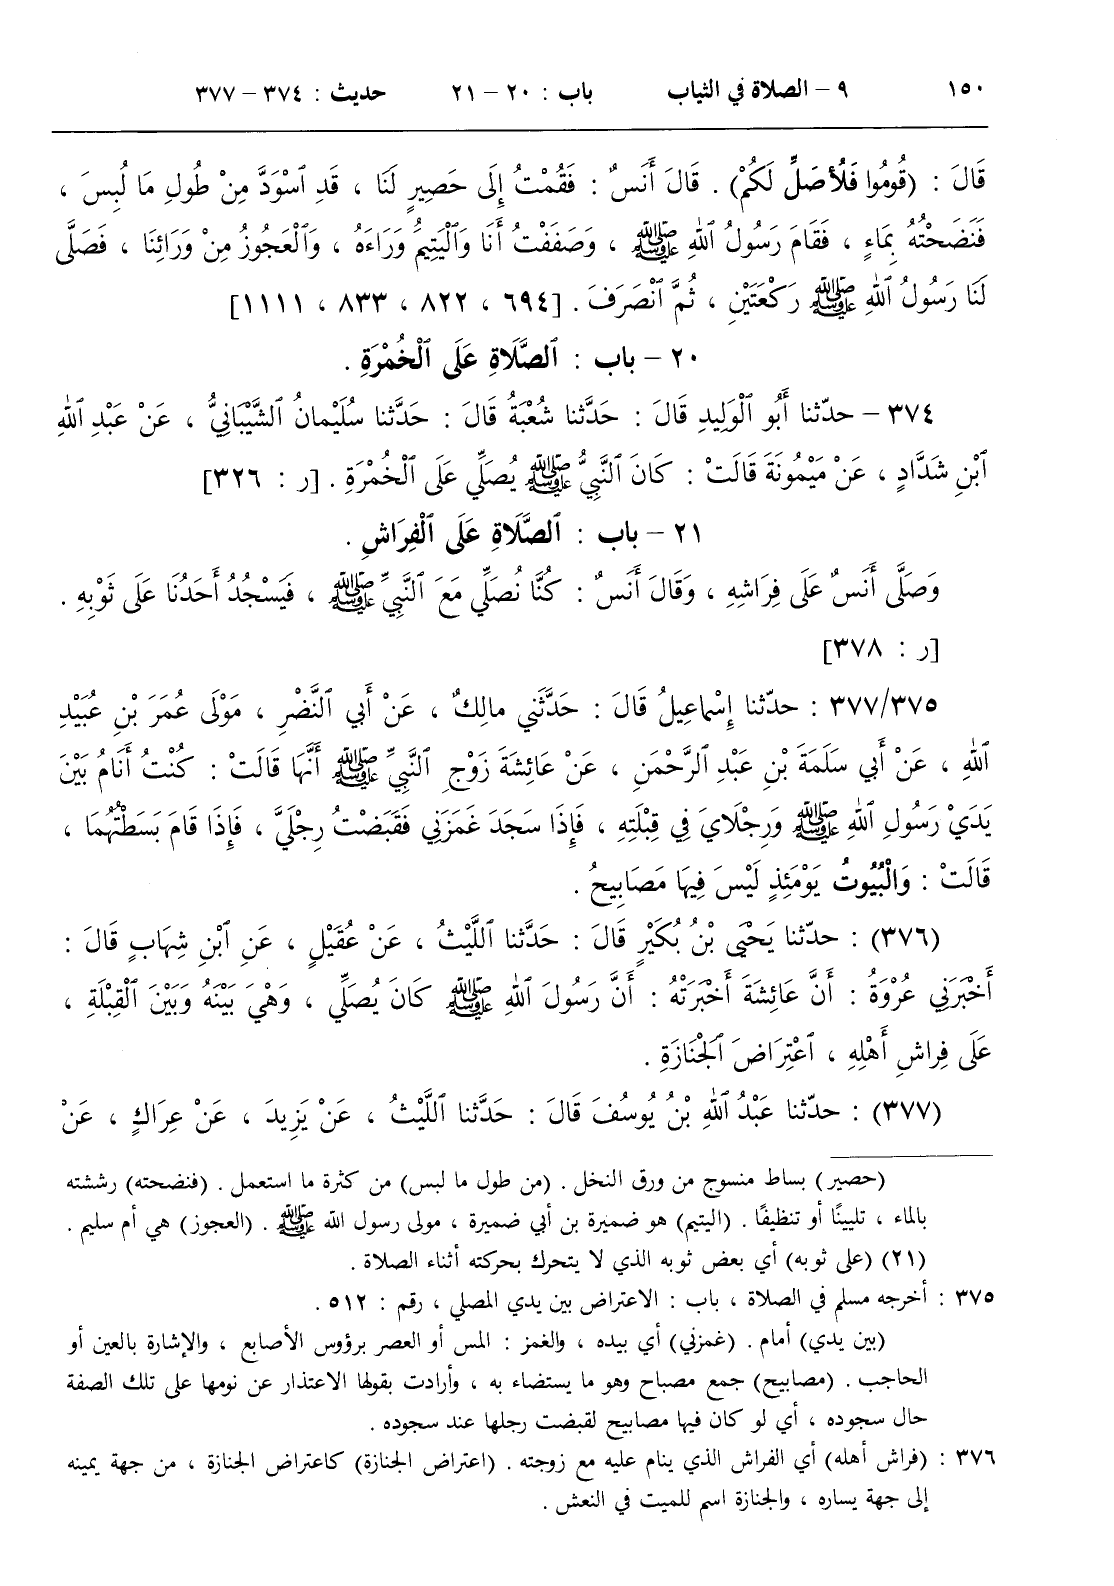 ١٥٠ ٩ – الصلاة في الثياب باب : ٢٠ – ٢١ حديث : ٣٧٤ – ٣٧٧
قَالَ : (قُومُوا فَلْأُصَلِّ لَكُمْ) . قَالَ أَنَسٌ : فَقُمْتُ إِلَى حَصِيرٍ لَنَا ، قَدِ ٱسْوَدَّ مِنْ طُولِ مَا لُبِسَ ،
فَنَضَحْتُهُ بِمَاءٍ ، فَقَامَ رَسُولُ ٱللهِ ﷺ ، وَصَفَفْتُ أَنَا وَٱلْيَتِيمُ وَرَاءَهُ ، وَٱلْعَجُوزُ مِنْ وَرَائِنَا ، فَصَلَّى
لَنَا رَسُولُ ٱللهِ ﷺ رَكْعَتَيْنِ ، ثُمَّ ٱنْصَرَفَ . [٦٩٤ ، ٨٢٢ ، ٨٣٣ ، ١١١١]
٢٠ – باب : ٱلصَّلَاةِ عَلَى ٱلْخُمْرَةِ .
٣٧٤ – حدّثنا أَبُو ٱلْوَلِيدِ قَالَ : حَدَّثَنا شُعْبَةُ قَالَ : حَدَّثَنا سُلَيْمانُ ٱلشَّيْبَانِيُّ ، عَنْ عَبْدِ ٱللهِ
ٱبْنِ شَدَّادٍ ، عَنْ مَيْمُونَةَ قَالَتْ : كَانَ ٱلنَّبِيُّ ﷺ يُصَلِّي عَلَى ٱلْخُمْرَةِ . [ر : ٣٢٦]
٢١ – باب : ٱلصَّلَاةِ عَلَى ٱلْفِرَاشِ .
وَصَلَّى أَنَسٌ عَلَى فِرَاشِهِ ، وَقَالَ أَنَسٌ : كُنَّا نُصَلِّي مَعَ ٱلنَّبِيِّ ﷺ ، فَيَسْجُدُ أَحَدُنَا عَلَى ثَوْبِهِ .
[ر : ٣٧٨]
٣٧٧/٣٧٥ : حدّثنا إِسْماعِيلُ قَالَ : حَدَّثَنِي مالِكٌ ، عَنْ أَبِي ٱلنَّضْرِ ، مَوْلَى عُمَرَ بْنِ عُبَيْدِ
ٱللهِ ، عَنْ أَبِي سَلَمَةَ بْنِ عَبْدِ ٱلرَّحْمٰنِ ، عَنْ عَائِشَةَ زَوْجِ ٱلنَّبِيِّ ﷺ أَنَّهَا قَالَتْ : كُنْتُ أَنَامُ بَيْنَ
يَدَيْ رَسُولِ ٱللهِ ﷺ وَرِجْلَايَ فِي قِبْلَتِهِ ، فَإِذَا سَجَدَ غَمَزَنِي فَقَبَضْتُ رِجْلَيَّ ، فَإِذَا قَامَ بَسَطْتُهُمَا ،
قَالَتْ : وَالْبُيُوتُ يَوْمَئِذٍ لَيْسَ فِيهَا مَصَابِيحُ .
(٣٧٦) : حدّثنا يَحْيَى بْنُ بُكَيْرٍ قَالَ : حَدَّثَنا اللَّيْثُ ، عَنْ عُقَيْلٍ ، عَنِ ٱبْنِ شِهَابٍ قَالَ :
أَخْبَرَنِي عُرْوَةُ : أَنَّ عَائِشَةَ أَخْبَرَتْهُ : أَنَّ رَسُولَ ٱللهِ ﷺ كَانَ يُصَلِّي ، وَهْيَ بَيْنَهُ وَبَيْنَ ٱلْقِبْلَةِ ،
عَلَى فِراشِ أَهْلِهِ ، ٱعْتِرَاضَ ٱلْجَنَازَةِ .
(٣٧٧) : حدّثنا عَبْدُ ٱللهِ بْنُ يُوسُفَ قَالَ : حَدَّثَنا اللَّيْثُ ، عَنْ يَزِيدَ ، عَنْ عِرَاكٍ ، عَنْ
(حصير) بساط منسوج من ورق النخل . (من طول ما لبس) من كثرة ما استعمل . (فنضحته) رششته
بالماء ، تليينًا أو تنظيفًا . (اليتيم) هو ضميرة بن أبي ضميرة ، مولى رسول الله ﷺ . (العجوز) هي أم سليم .
(٢١) (على ثوبه) أي بعض ثوبه الذي لا يتحرك بحركته أثناء الصلاة .
٣٧٥ : أخرجه مسلم في الصلاة ، باب : الاعتراض بين يدي المصلي ، رقم : ٥١٢ .
(بين يدي) أمام . (غمزني) أي بيده ، والغمز : المس أو العصر برؤوس الأصابع ، والإشارة بالعين أو
الحاجب . (مصابيح) جمع مصباح وهو ما يستضاء به ، وأرادت بقولها الاعتذار عن نومها على تلك الصفة
حال سجوده ، أي لو كان فيها مصابيح لقبضت رجلها عند سجوده .
٣٧٦ : (فراش أهله) أي الفراش الذي ينام عليه مع زوجته . (اعتراض الجنازة) كاعتراض الجنازة ، من جهة يمينه
إلى جهة يساره ، والجنازة اسم للميت في النعش .